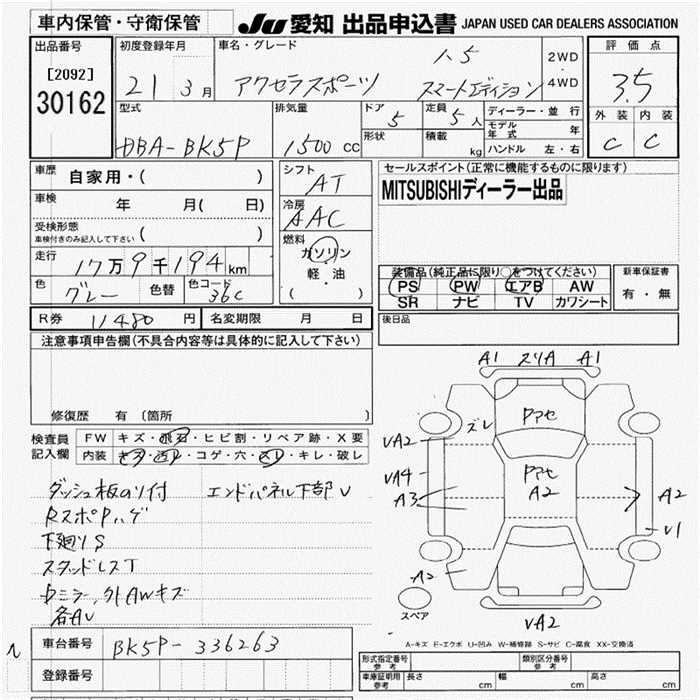 車内保管・守衛保管
JU 愛知 出品申込書 JAPAN USED CAR DEALERS ASSOCIATION
出品番号
[2092]
30162
初度登録年月
21 3月
車名・グレード
1.5
アクセラスポーツ スマートエディション
2WD
・
4WD
評価点
3.5
外装 内装
C C
型式
DBA-BK5P
排気量
1500cc
ドア
5
形状
定員
5人
積載
kg
ディーラー・並行
モデル年式 年
ハンドル 左・右
車歴
自家用・( )
車検
年 月( 日)
受検形態
車検付きのみ記入して下さい ( )
走行
17万9千194km
色
グレー
色替
色コード
36C
シフト
AT
冷房
AAC
燃料
ガソリン
軽・油
( )
セールスポイント(正常に機能するものに限ります)
MITSUBISHIディーラー出品
装備品(純正品に限り○をつけてください)
PS PW エアB AW
SR ナビ TV カワシート
新車保証書
有・無
R券 11480円
名変期限 月 日
後日品
注意事項申告欄(不具合内容等は具体的に記入して下さい)
修復歴 有 (箇所 )
検査員記入欄
FW キズ・飛石・ヒビ割・リペア跡・X要
内装 キズ・汚レ・コゲ・穴・スレ・キレ・破レ
ダッシュ板のり付 エンドパネル下部U
RスポPハゲ
下廻りS
スタッドレスT
ドミラー,外AWキズ
各AU
A1 スリA A1
ズレ
Pアセ
UA2
UA4
A3
Pアセ
A2
A2
U1
A2
UA2
スペア
A-キズ E-エクボ U-凹み W-補修跡 S-サビ C-腐食 XX-交換済
車台番号 BK5P-336263
登録番号
形式指定番号
参考
類別区分番号
参考
車庫証明用
参考
長さ cm 幅 cm 高さ cm